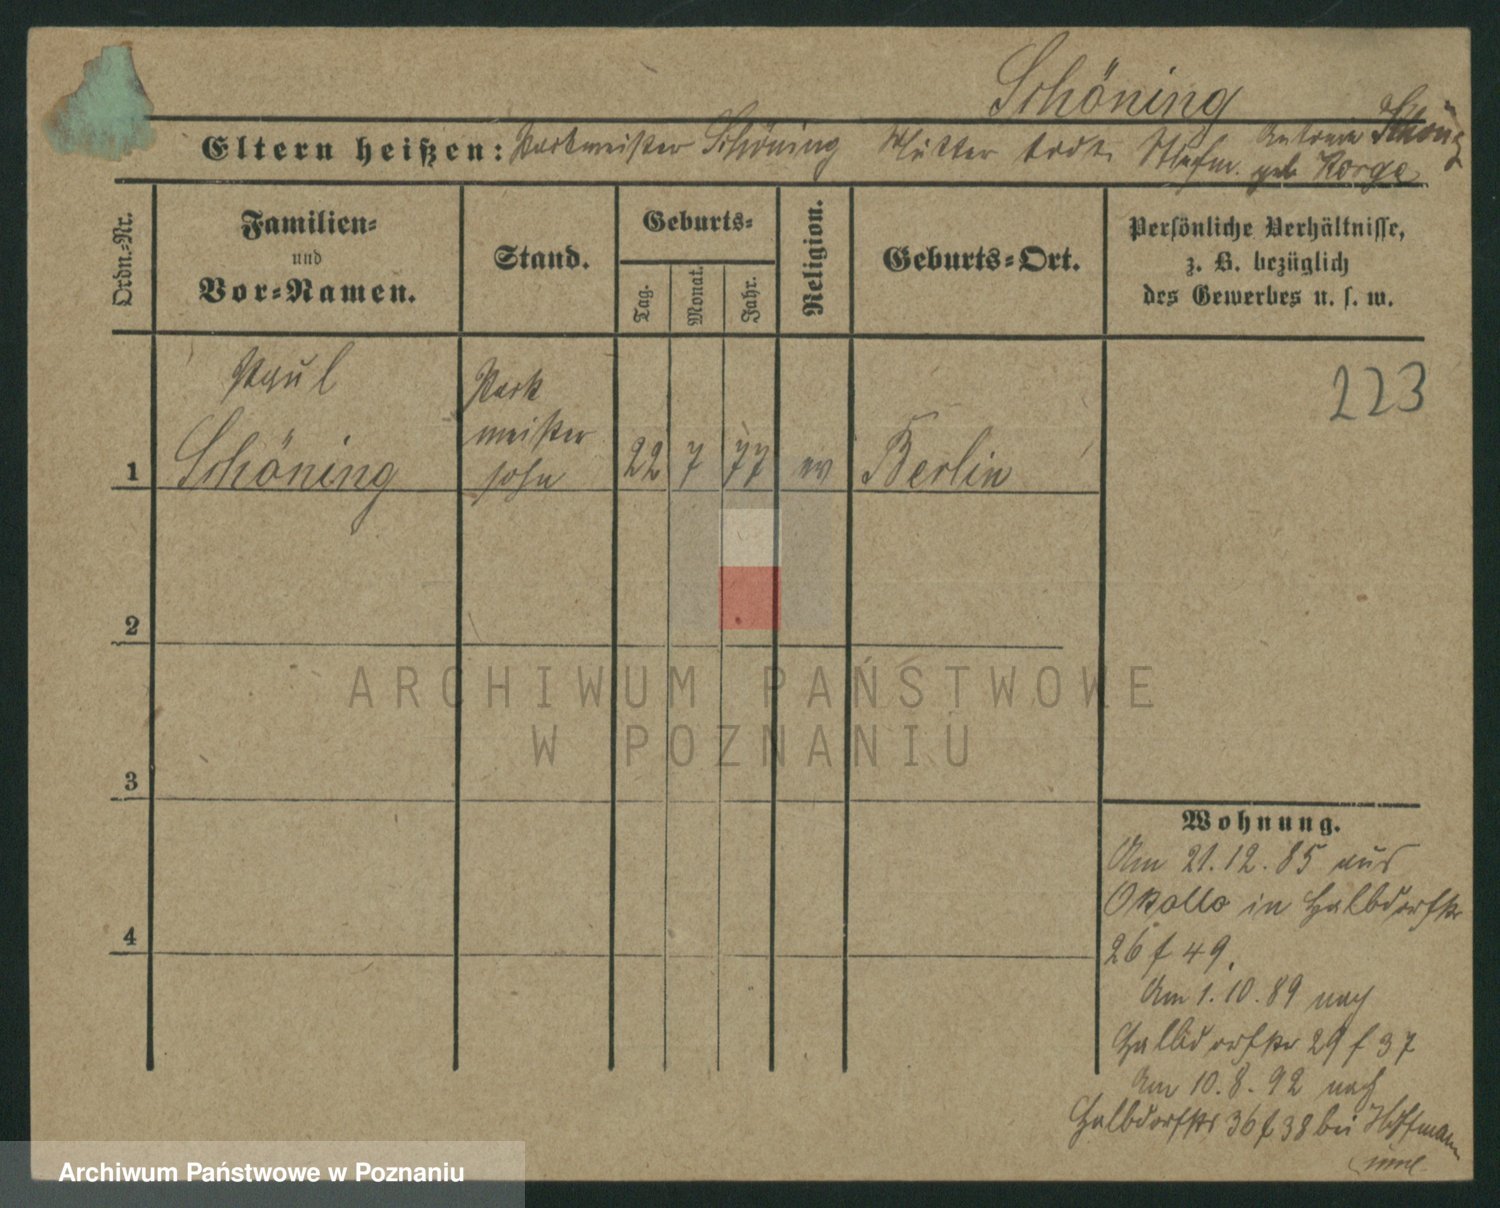 Schöning
Eltern heißen: Parkmeister Schöning Mutter todt. Stiefm. Antonie Schöning
geb. Korge
Ordn.-Nr.
Familien-
und
Vor-Namen.
Stand.
Geburts-
Tag.
Monat.
Jahr.
Religion.
Geburts-Ort.
Persönliche Verhältnisse,
z. B. bezüglich
des Gewerbes u. s. w.
223
Paul
Schöning
Park
meister
sohn
1
22 7 77 ev Berlin
2
3
4
ARCHIWUM PAŃSTWOWE
W POZNANIU
Wohnung.
Am 21.12.85 aus
Okollo in Halbdorfstr
26 f 49.
Am 1.10.89 nach
Halbdorfstr 29 f 37
Am 10.8.92 nach
Halbdorfstr 36 f 38 bei Hoffmann
Archiwum Państwowe w Poznaniu